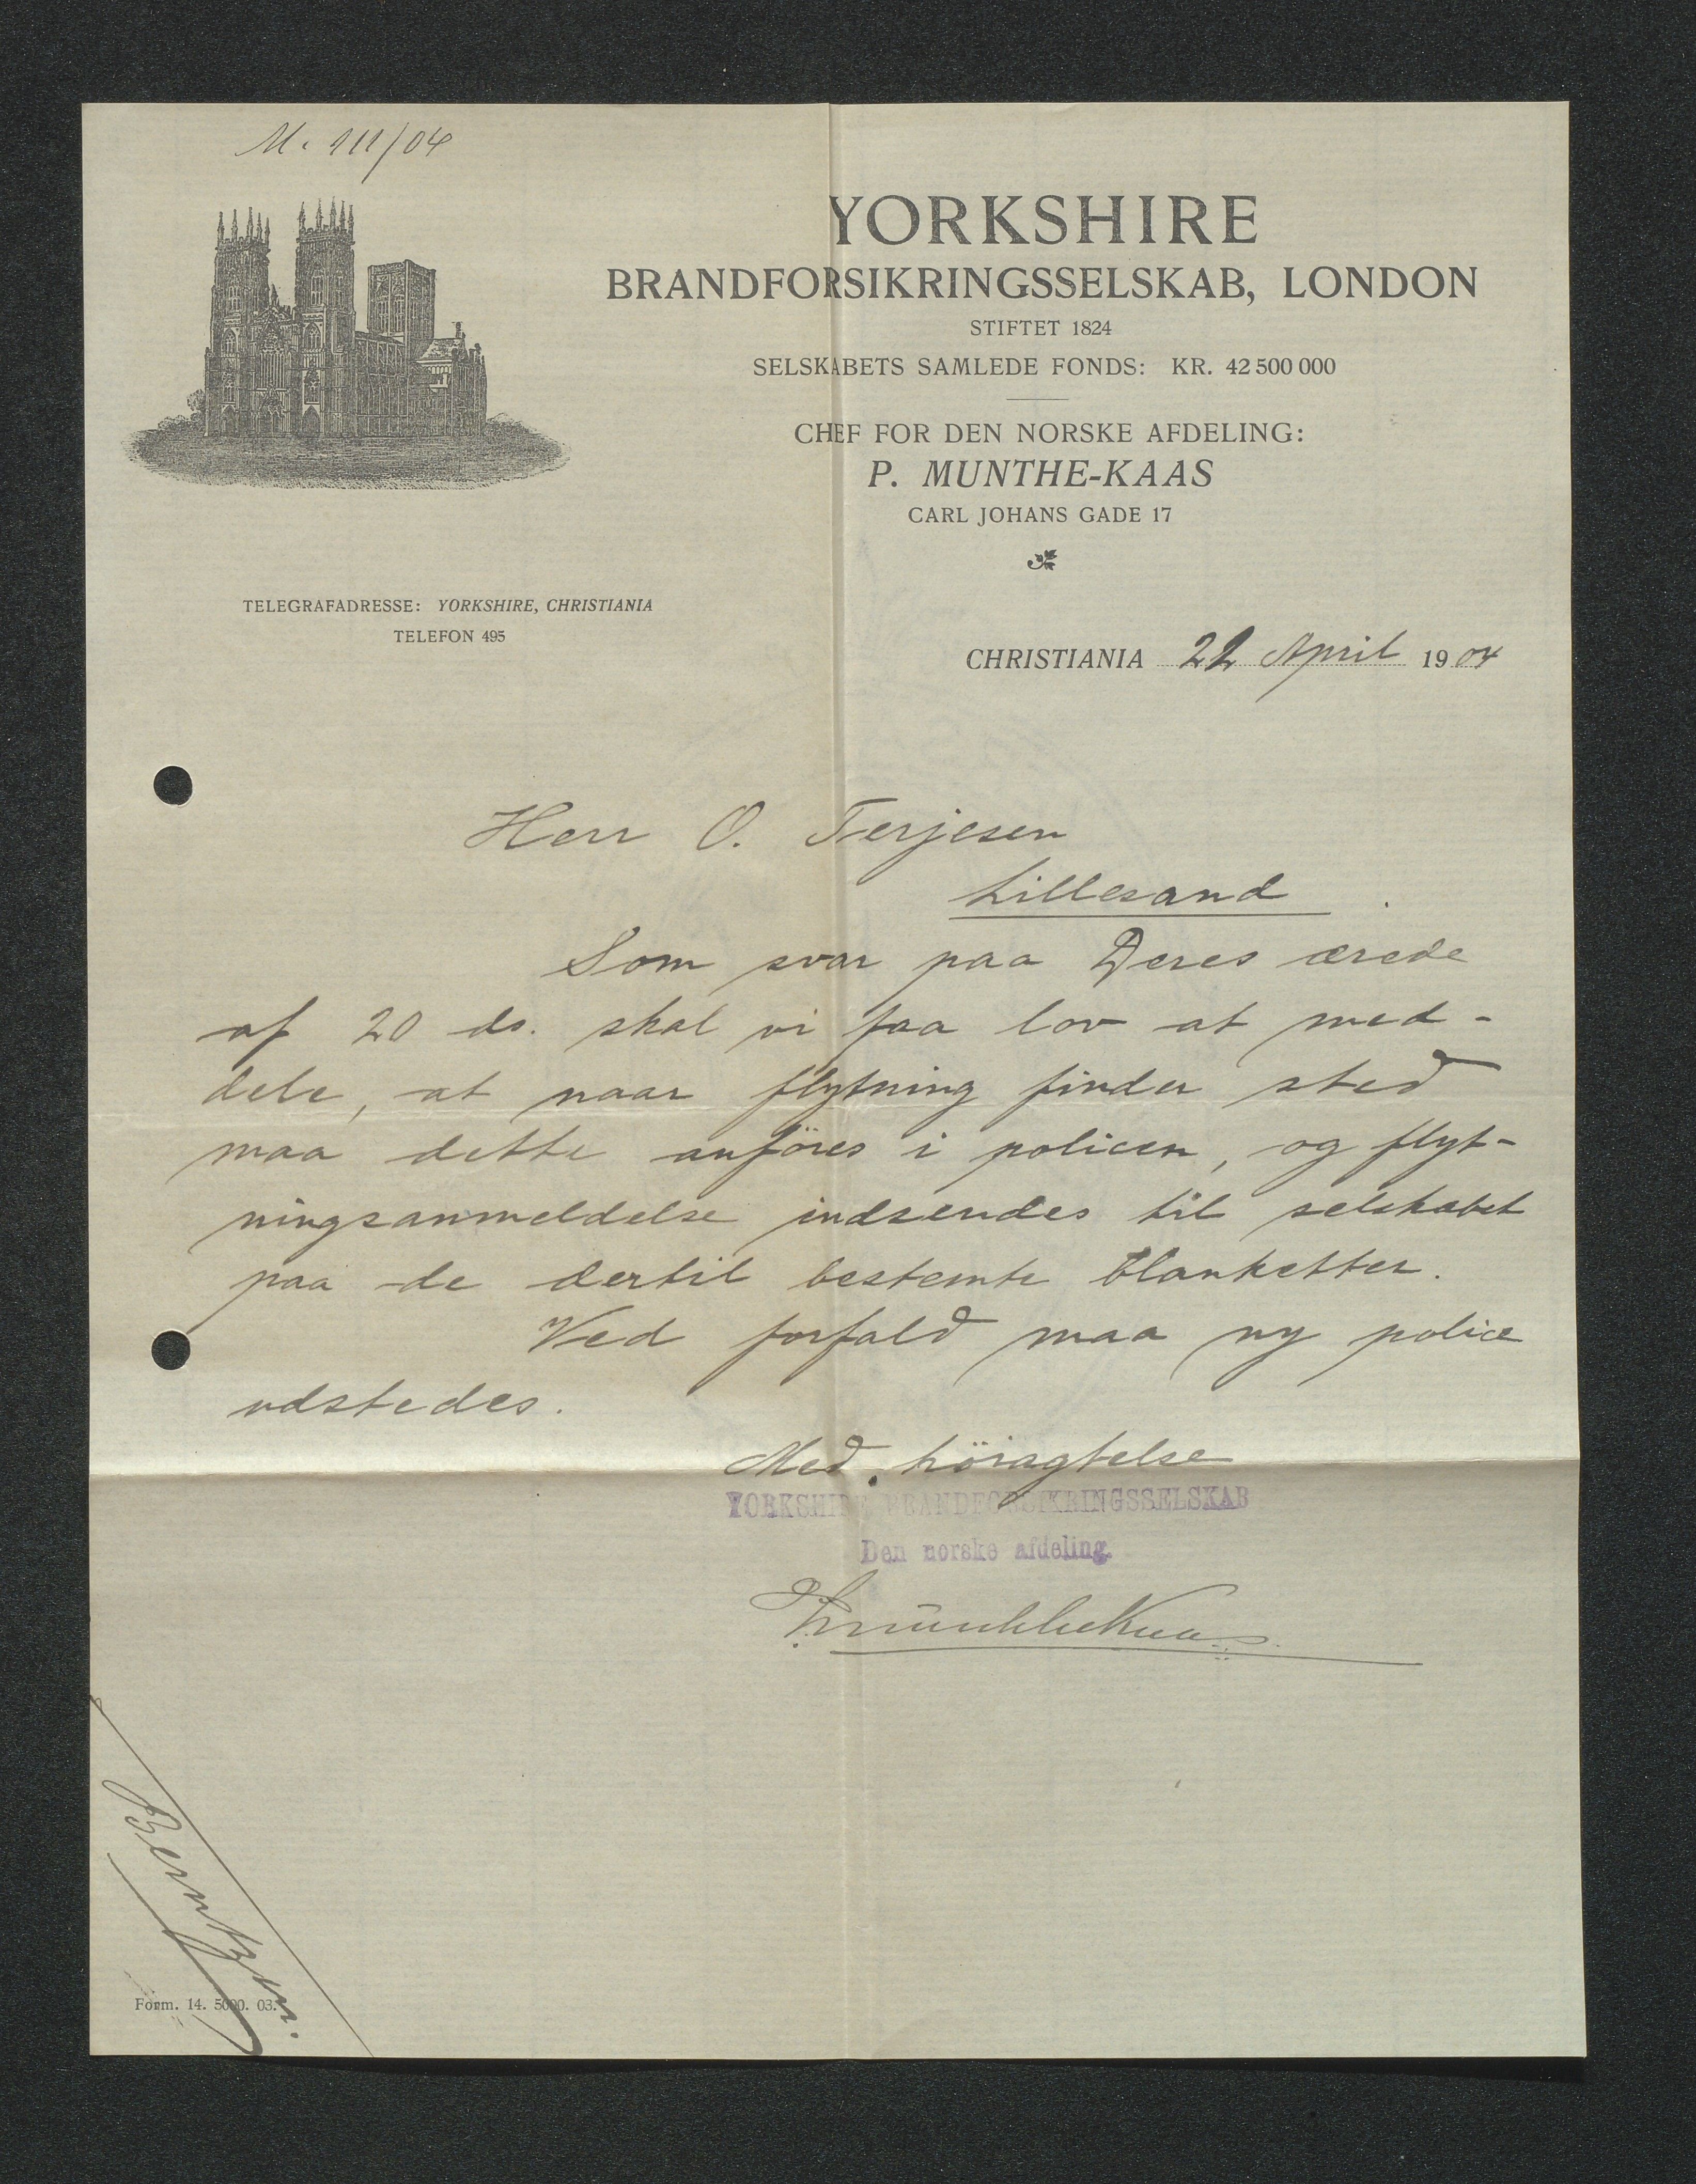 M. 111/04
YORKSHIRE
BRANDFORSIKRINGSSELSKAB, LONDON
STIFTET 1824
SELSKABETS SAMLEDE FONDS: KR. 42 500 000
CHEF FOR DEN NORSKE AFDELING:
P. MUNTHE-KAAS
CARL JOHANS GADE 17
TELEGRAFADRESSE: YORKSHIRE, CHRISTIANIA
TELEFON 495
CHRISTIANIA 22 April 1904
Herr O. Terjesen
Lillesand
Som svar paa Deres ærede
af 20 ds. skal vi faa lov at med-
dele, at naar flytning finder sted
maa dette anföres i policen, og flyt-
ningsanmeldelse indsendes til selskabet
paa de dertil bestemte blanketter.
Ved forfald maa ny police
udstedes.
Med höiagtelse
YORKSHIRE BRANDFORSIKRINGSSELSKAB
Den norske afdeling.
PMuntheKaas
Berntzen.
Form. 14. 5000. 03.